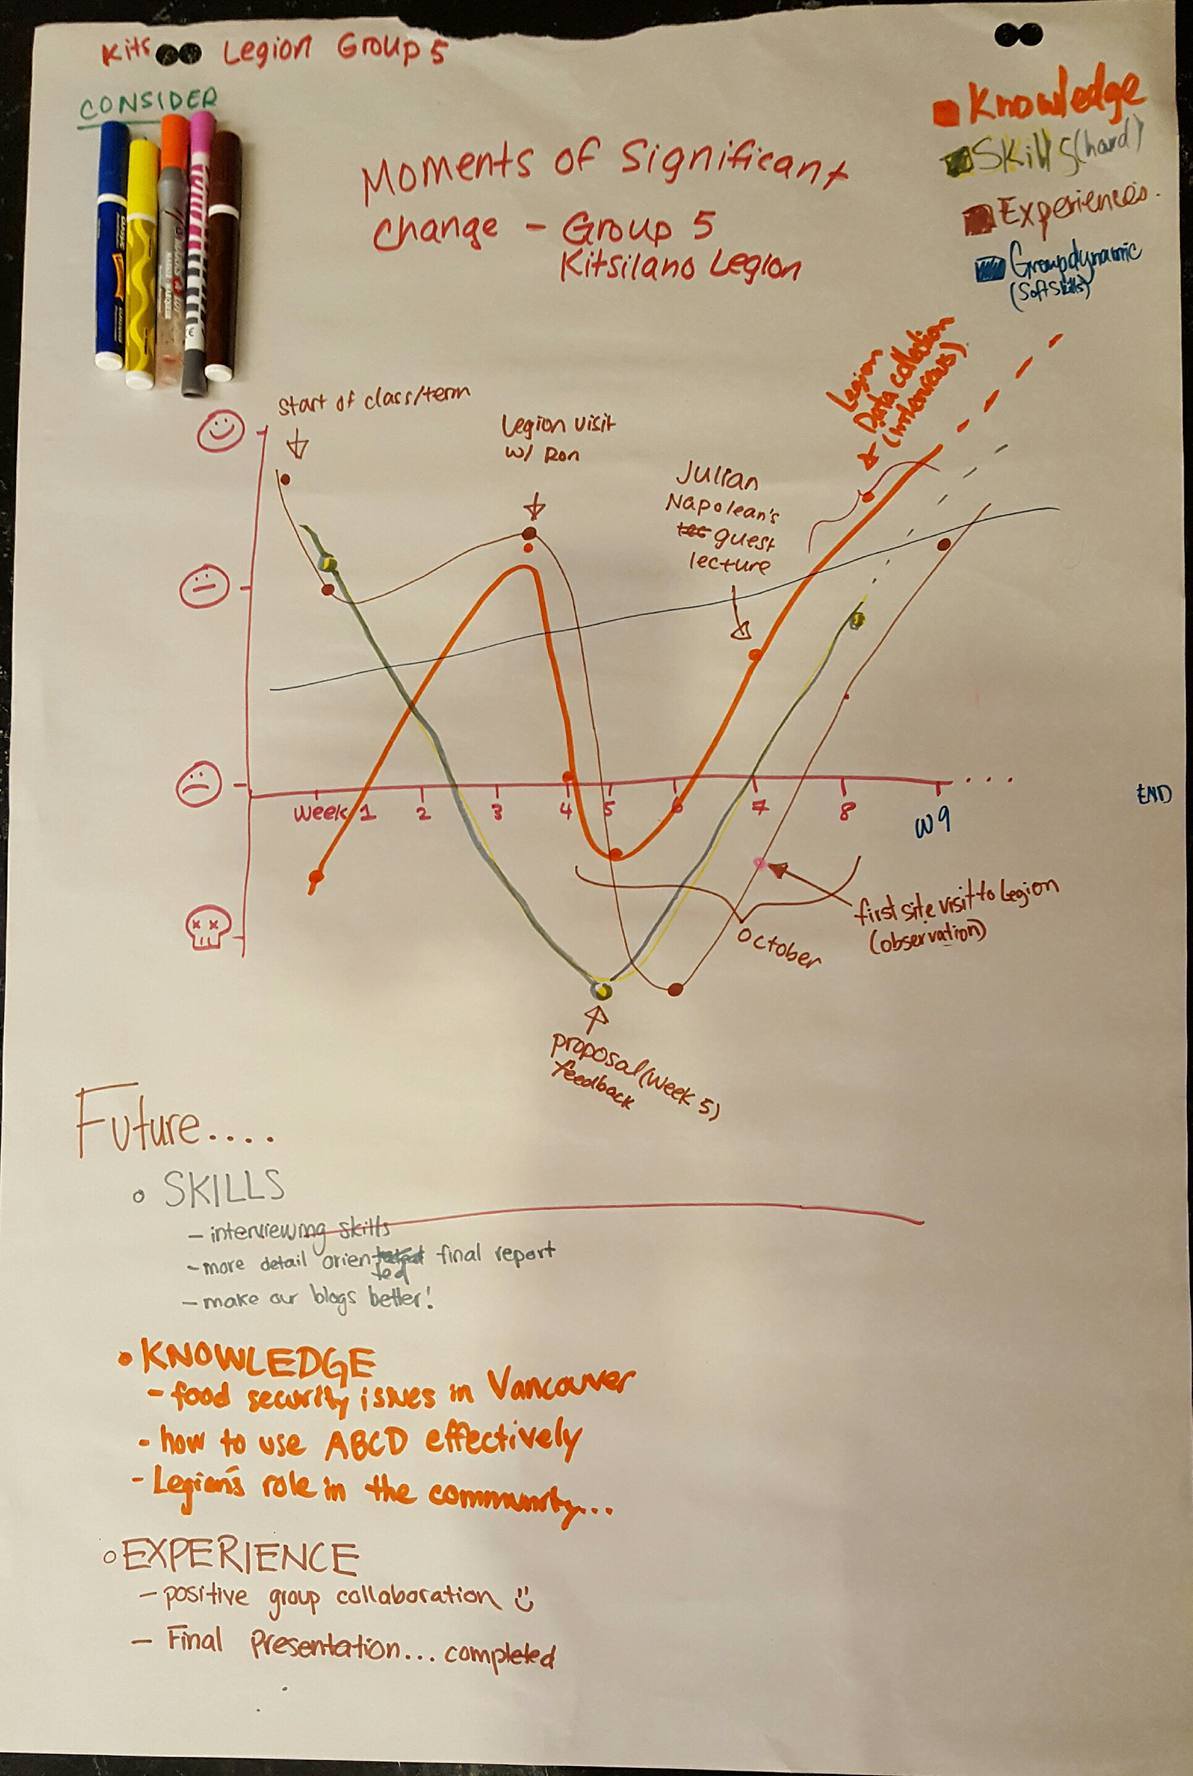 Kits Legion Group 5
CONSIDER
Knowledge
Skills (hard)
Experiences.
Groupdynamic
(Soft Skills)
Moments of Significant
change - Group 5
Kitsilano Legion
Start of class/term
Legion visit
w/ Ron
Julian
Napolean's
guest
lecture
Legion
Data collection
(interviews)
Week 1 2 3 4 5 6 7 8 W9 ....
END
first site visit to Legion
(observation)
October
proposal (Week 5)
feedback
Future....
SKILLS
- interviewing skills
- more detail oriented final report
- make our blogs better!
• KNOWLEDGE
- food security issues in Vancouver
- how to use ABCD effectively
- Legion's role in the community...
EXPERIENCE
- positive group collaboration
- Final Presentation... completed